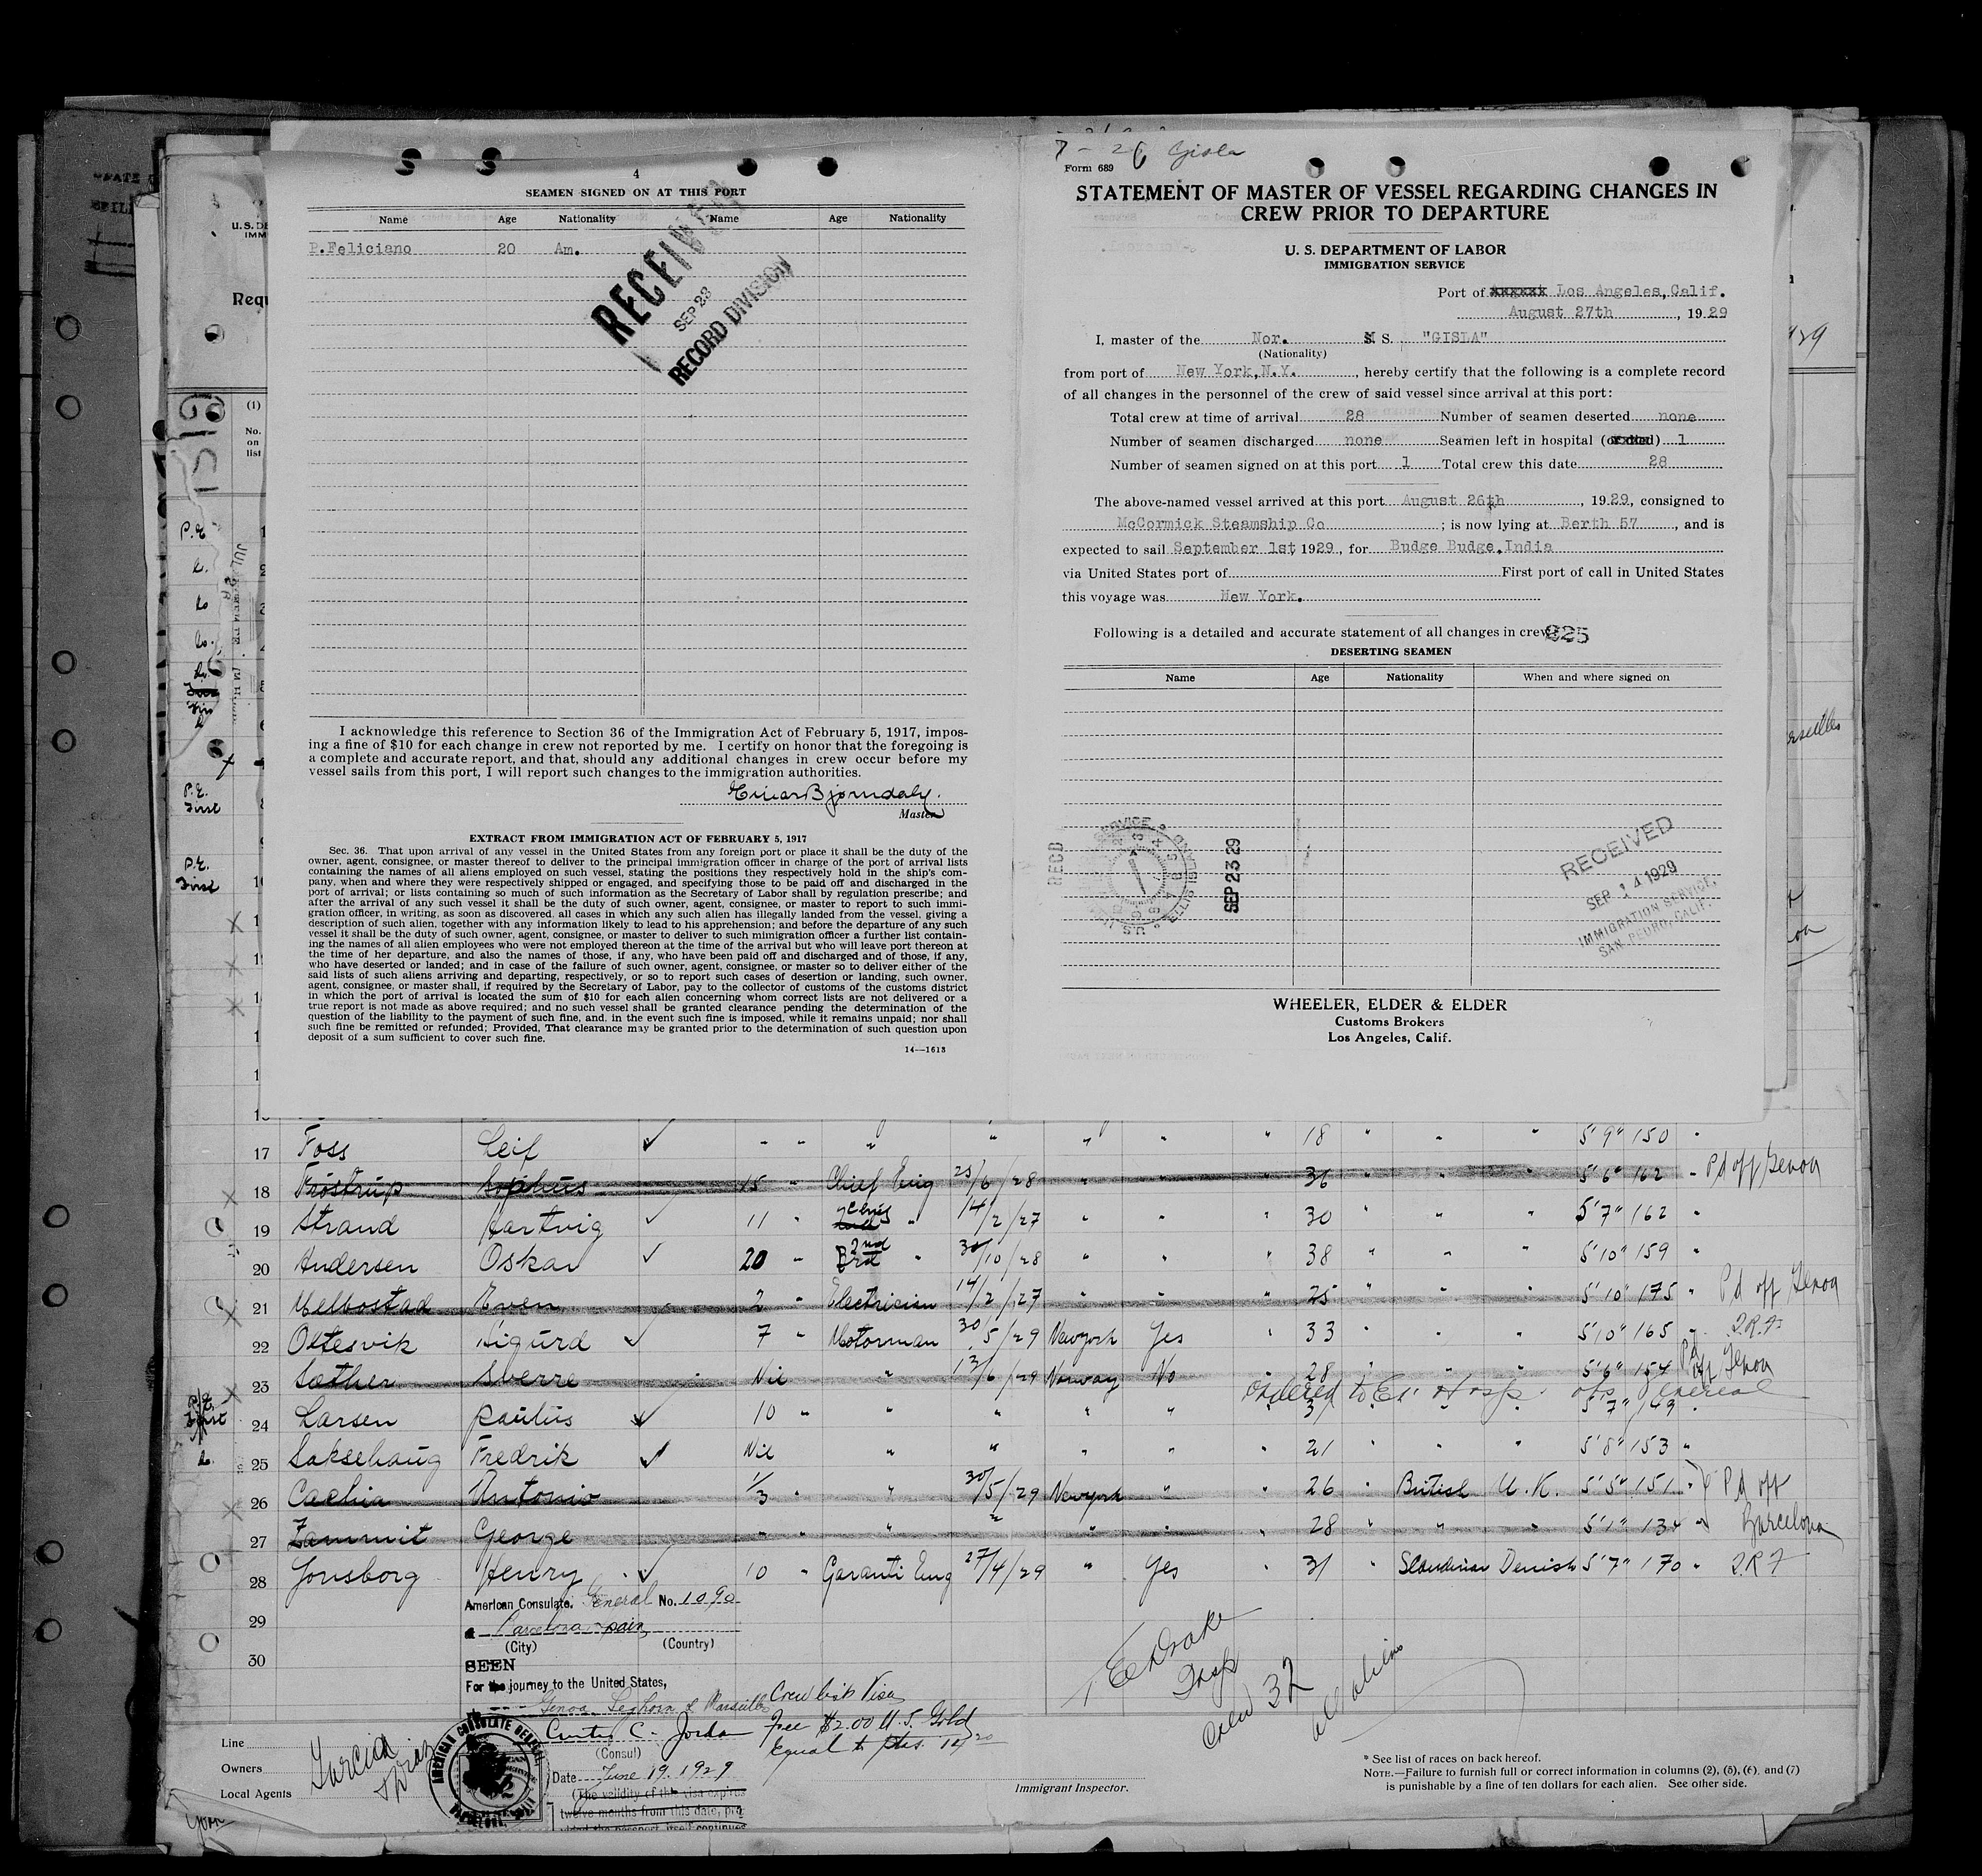 4
SEAMEN SIGNED ON AT THIS PORT
Name Age Nationality Name Age Nationality
P.Feliciano 20 Am.
RECEIVED
SEP 23
RECORD DIVISION
I acknowledge this reference to Section 36 of the Immigration Act of February 5, 1917, impos-
ing a fine of $10 for each change in crew not reported by me. I certify on honor that the foregoing is
a complete and accurate report, and that, should any additional changes in crew occur before my
vessel sails from this port, I will report such changes to the immigration authorities.
Einar Bjorndaly.
Master
EXTRACT FROM IMMIGRATION ACT OF FEBRUARY 5, 1917
Sec. 36. That upon arrival of any vessel in the United States from any foreign port or place it shall be the duty of the
owner, agent, consignee, or master thereof to deliver to the principal immigration officer in charge of the port of arrival lists
containing the names of all aliens employed on such vessel, stating the positions they respectively hold in the ship's com-
pany, when and where they were respectively shipped or engaged, and specifying those to be paid off and discharged in the
port of arrival; or lists containing so much of such information as the Secretary of Labor shall by regulation prescribe; and
after the arrival of any such vessel it shall be the duty of such owner, agent, consignee, or master to report to such immi-
gration officer, in writing, as soon as discovered, all cases in which any such alien has illegally landed from the vessel, giving a
description of such alien, together with any information likely to lead to his apprehension; and before the departure of any such
vessel it shall be the duty of such owner, agent, consignee, or master to deliver to such immigration officer a further list contain-
ing the names of all alien employees who were not employed thereon at the time of the arrival but who will leave port thereon at
the time of her departure, and also the names of those, if any, who have been paid off and discharged and of those, if any,
who have deserted or landed; and in case of the failure of such owner, agent, consignee, or master so to deliver either of the
said lists of such aliens arriving and departing, respectively, or so to report such cases of desertion or landing, such owner,
agent, consignee, or master shall, if required by the Secretary of Labor, pay to the collector of customs of the customs district
in which the port of arrival is located the sum of $10 for each alien concerning whom correct lists are not delivered or a
true report is not made as above required; and no such vessel shall be granted clearance pending the determination of the
question of the liability to the payment of such fine, and, in the event such fine is imposed, while it remains unpaid; nor shall
such fine be remitted or refunded; Provided, That clearance may be granted prior to the determination of such question upon
deposit of a sum sufficient to cover such fine.
14—1613
7 - 26 Gisla
Form 689
STATEMENT OF MASTER OF VESSEL REGARDING CHANGES IN
CREW PRIOR TO DEPARTURE
U. S. DEPARTMENT OF LABOR
IMMIGRATION SERVICE
Port of Los Angeles, Calif.
August 27th, 1929
I, master of the Nor. M S. "GISLA"
(Nationality)
from port of New York, N.Y., hereby certify that the following is a complete record
of all changes in the personnel of the crew of said vessel since arrival at this port:
Total crew at time of arrival 28 Number of seamen deserted none
Number of seamen discharged none Seamen left in hospital 1
Number of seamen signed on at this port 1 Total crew this date 28
The above-named vessel arrived at this port August 26th, 1929, consigned to
McCormick Steamship Co; is now lying at Berth 57, and is
expected to sail September 1st 1929, for Budge Budge, India
via United States port of First port of call in United States
this voyage was New York.
Following is a detailed and accurate statement of all changes in crew
225
DESERTING SEAMEN
Name Age Nationality When and where signed on
RECD
SEP 23 29
RECEIVED
SEP 14 1929
IMMIGRATION SERVICE,
SAN PEDRO, CALIF.
WHEELER, ELDER & ELDER
Customs Brokers
Los Angeles, Calif.
17 Foss Leif " " " " " " " 18 " " " 5'9" 150 "
18 Frostrup Sophus 15 " Chief Eng 25/6/28 " " " 36 " " " 5'6" 162 " Pd off Genoa
19 Strand Hartvig 11 " " 14/2/27 " " " 30 " " " 5'7" 162 "
20 Andersen Oskar 20 " 2nd " 30/10/28 " " " 38 " " " 5'10" 159 "
21 Melbostad Even 2 " Electrician 14/2/27 " " " 25 " " " 5'10" 175 " Pd off Genoa
22 Ottesvik Sigurd 7 " Motorman 30/5/29 Newyork Yes " 33 " " " 5'10" 165 "
23 Sæther Sverre Nil " 13/6/29 Norway No " 28 " " " 5'6" 154 Pd off Genoa
Ordered to Hosp.
24 Larsen Paulus 10 " " " " " " 31 5'7" 149
25 Saksehaug Fredrik Nil " " " " " 21 " " " 5'8" 153 "
26 Cachia Antonio 1/3 " " 30/5/29 Newyork " " 26 " British U.K. 5'5" 151 " Pd off
27 Zammit George " " " " " " " 28 " " " 5'1" 134 " Barcelona
28 Jonsborg Henry 10 " Garanti Eng 27/4/29 " Yes " 31 " Scandinav Denish 5'7" 170 "
29
30
American Consulate General No. 1090
Barcelona Spain
(City) (Country)
SEEN
For the journey to the United States,
Genoa, Leghorn & Marseille
Curtis C. Jordan
(Consul)
Date June 19, 1929
(The validity of this visa expires
twelve months from this date, pro-
vided the passport itself continues
Crew list Visa
Fee $2.00 U.S. Gold
Equal to ptas. 14
Line
Owners
Local Agents
Garcia
Immigrant Inspector.
Crew 32
* See list of races on back hereof.
NOTE.—Failure to furnish full or correct information in columns (2), (5), (6), and (7)
is punishable by a fine of ten dollars for each alien. See other side.